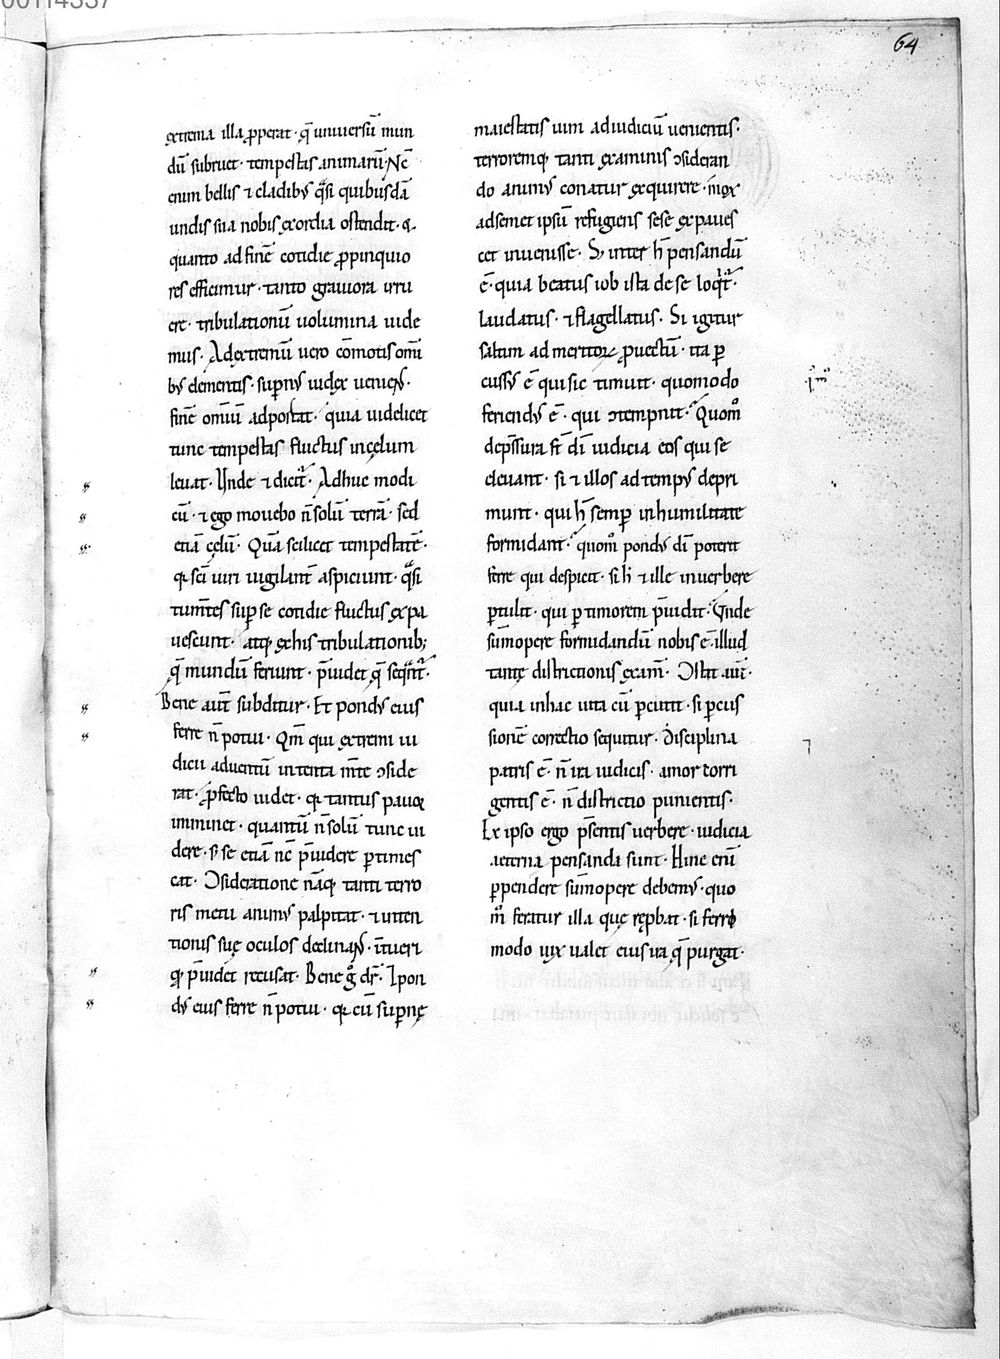 64
extrema illa ꝓperat· q̄ uniuersū mun
dū subruet· tempestas animarū· Nc̄
enim bellis ⁊ cladibꝰ q̄si quibusdā
undis sua nobis exordia ostendit· &
quanto ad finē cotidie ꝓpinquio
res efficimur· tanto grauiora irru
ere· tribulationū uolumina uide
mus· Ad extremū uero cōmotis omī
bꝰ elementis· supernꝰ iudex ueniens·
finē omiū adportat· quia uidelicet
tunc tempestas fluctus in cęlum
leuat· Unde ⁊ dicit᷑· Adhuc modi
cū· ⁊ ego mouebo n̄ solū terrā· sed
etiā cęlū· Quā scilicet tempestatē·
qꝛ sc̄i uiri uigilant̄ aspiciunt· q̄si
tumētes sup̱ se cotidie fluctus expa
uescunt· atqꝫ ex his tribulationibꝫ
q̄ mundū feriunt· p̄uidet q̄ seqn̄t᷑·
Bene aut̄ subditur· Et pondꝰ eius
ferre n̄ potui· Qm̄ qui extremi iu
dicii aduentū intenta m̄te ↄside
rat· ꝓfecto uidet· qꝛ tantus pauor
imminet· quantū n̄ solū tunc ui
dere· sꝫ se etiā nc̄ p̄uidere ꝑtimes
cat· Ↄsideratione nāqꝫ tanti terro
ris metu animꝰ palpitat· ⁊ inten
tionis suę oculos declinans· īntueri
qꝫ p̄uidet recusat· Bene gͦ dr̄· I pon
dꝰ eius ferre n̄ potui· qꝛ cū supernę
maiestatis uim ad iudiciū uenientis·
terroremqꝫ tanti examinis ↄsideran
do animꝰ conatur exquirere· mox
ad semet ipsū refugiens sese expaues
cet inuenisse· Sꝫ inter h̄ pensandū
ē· quia beatus iob ista de se loqͥt᷑·
laudatus· ⁊ flagellatus· Si igitur
saltim ad meritoꝝ ꝓuectū· ita ꝑ
cussꝰ ē qui sic timuit· quomodo
feriendꝰ ē· qui ↄtempnit· Quom̊
dep̄ssura st̄ dī iudicia eos qui se
eleuant· si ⁊ illos ad tempꝰ depri
munt· qui h̄ semꝑ in humilitate
formidant· quom̊ pondꝰ dī poterit
ferre qui despicit· si h̄ ⁊ ille in uerbere
ꝑtulit· qui ꝑ timorem p̄uidit· Unde
sūmopere formidandū nobis ē· illud
tantę districtionis exam̄· Ↄstat aut̄·
quia in hac uita cū ꝑcutit· si ꝑcus
sionē correctio sequitur· Disciplina
patris ē· n̄ ira iudicis· amor corri
gentis ē· n̄ districtio punientis·
Ex ipso ergo p̄sentis uerbere· iudicia
aeterna pensanda sunt· Hinc eni̅
ꝑpendere sūmopere debemꝰ· quo
m̊ feratur illa quę rep̱bat· si ferri
modo uix ualet eius ira q̄ purgat·